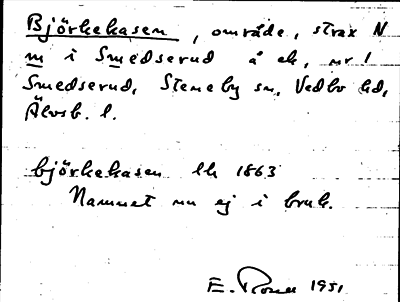 Björkekasen, område, strax N
m i Smedserud å ek, nr 1
Smedserud, Steneby sn, Vedbo hd,
Älvsb. l.
björkekasen lk 1863
Namnet nu ej i bruk.
E. Rosen 1951